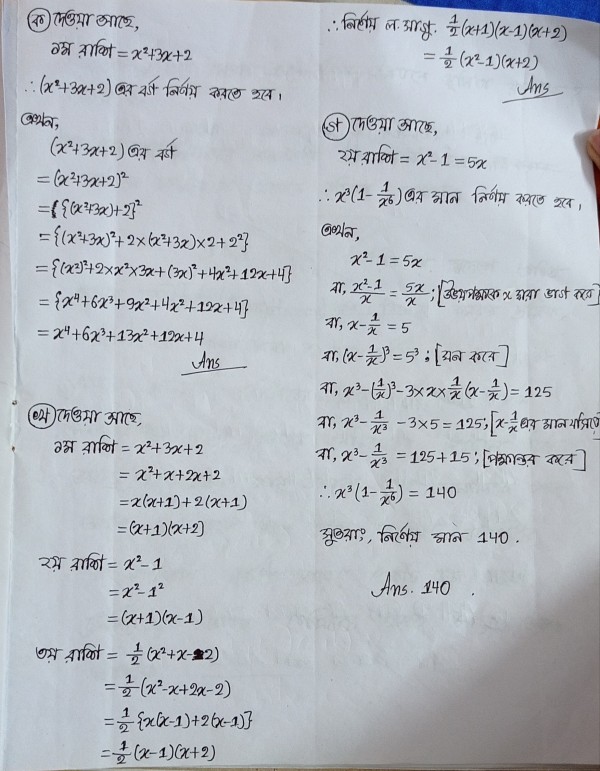 (ক) দেওয়া আছে,
১ম রাশি = x²+3x+2
∴ (x²+3x+2) এর বর্গ নির্ণয় করতে হবে।
এখন,
(x²+3x+2) এর বর্গ
= (x²+3x+2)²
= {(x²+3x)+2}²
= {(x²+3x)²+2×(x²+3x)×2+2²}
= {(x²)²+2×x²×3x+(3x)²+4x²+12x+4}
= {x⁴+6x³+9x²+4x²+12x+4}
= x⁴+6x³+13x²+12x+4
Ans
(খ) দেওয়া আছে,
১ম রাশি = x²+3x+2
= x²+x+2x+2
= x(x+1)+2(x+1)
= (x+1)(x+2)
২য় রাশি = x²-1
= x²-1²
= (x+1)(x-1)
৩য় রাশি = 1/2 (x²+x-2)
= 1/2 (x²-x+2x-2)
= 1/2 {x(x-1)+2(x-1)}
= 1/2 (x-1)(x+2)
∴ নির্ণেয় ল.সা.গু. 1/2 (x+1)(x-1)(x+2)
= 1/2 (x²-1)(x+2)
Ans
(গ) দেওয়া আছে,
২য় রাশি = x²-1 = 5x
∴ x³(1 - 1/x⁶) এর মান নির্ণয় করতে হবে।
এখন,
x²-1 = 5x
বা, x²-1/x = 5x/x ; [উভয়পক্ষকে x দ্বারা ভাগ করে]
বা, x - 1/x = 5
বা, (x - 1/x)³ = 5³ ; [ঘন করে]
বা, x³ - (1/x)³ - 3×x×1/x (x - 1/x) = 125
বা, x³ - 1/x³ - 3×5 = 125 ; [x - 1/x এর মান বসিয়ে]
বা, x³ - 1/x³ = 125+15 ; [পক্ষান্তর করে]
∴ x³(1 - 1/x⁶) = 140
সুতরাং, নির্ণেয় মান 140.
Ans. 140.